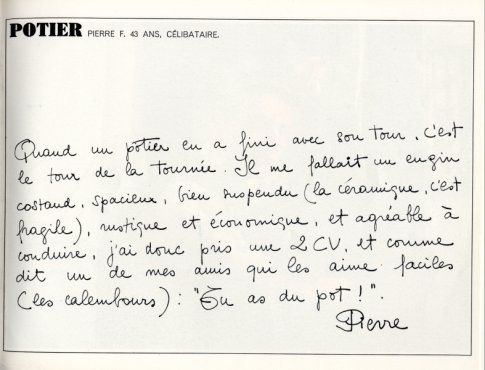 POTIER PIERRE F. 43 ANS, CÉLIBATAIRE.
Quand un potier en a fini avec son tour, c'est
le tour de la tournée. Il me fallait un engin
costaud, spacieux, bien suspendu (la céramique, c'est
fragile), rustique et économique, et agréable à
conduire, j'ai donc pris une 2CV, et comme
dit un de mes amis qui les aime faciles
(les calembours) : "Tu as du pot !".
Pierre